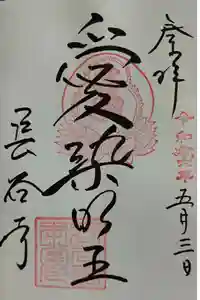 奉拝
令和年五月三日
愛染明王
長谷寺